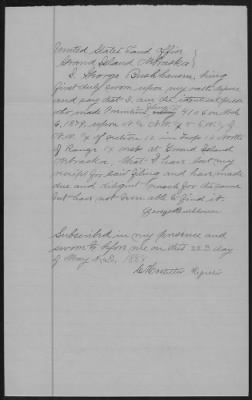 United States Land Office
Grand Island Nebraska
I George Buskhausen, being
first duly sworn upon my oath depose
and say that I am the identical person
who made Filing
6, 1879, upon N½ N.W.¼ & S.W.¼ of
N.W.¼ of Section 12 in Town 12 North
of Range 14 West at Grand Island
Nebraska, that I have lost my
receipt for said filing and have made
due and diligent search for the same
but have not been able to find it.
George
Subscribed in my presence and
sworn to before me on this 22d day
of May A.D. 188
Register